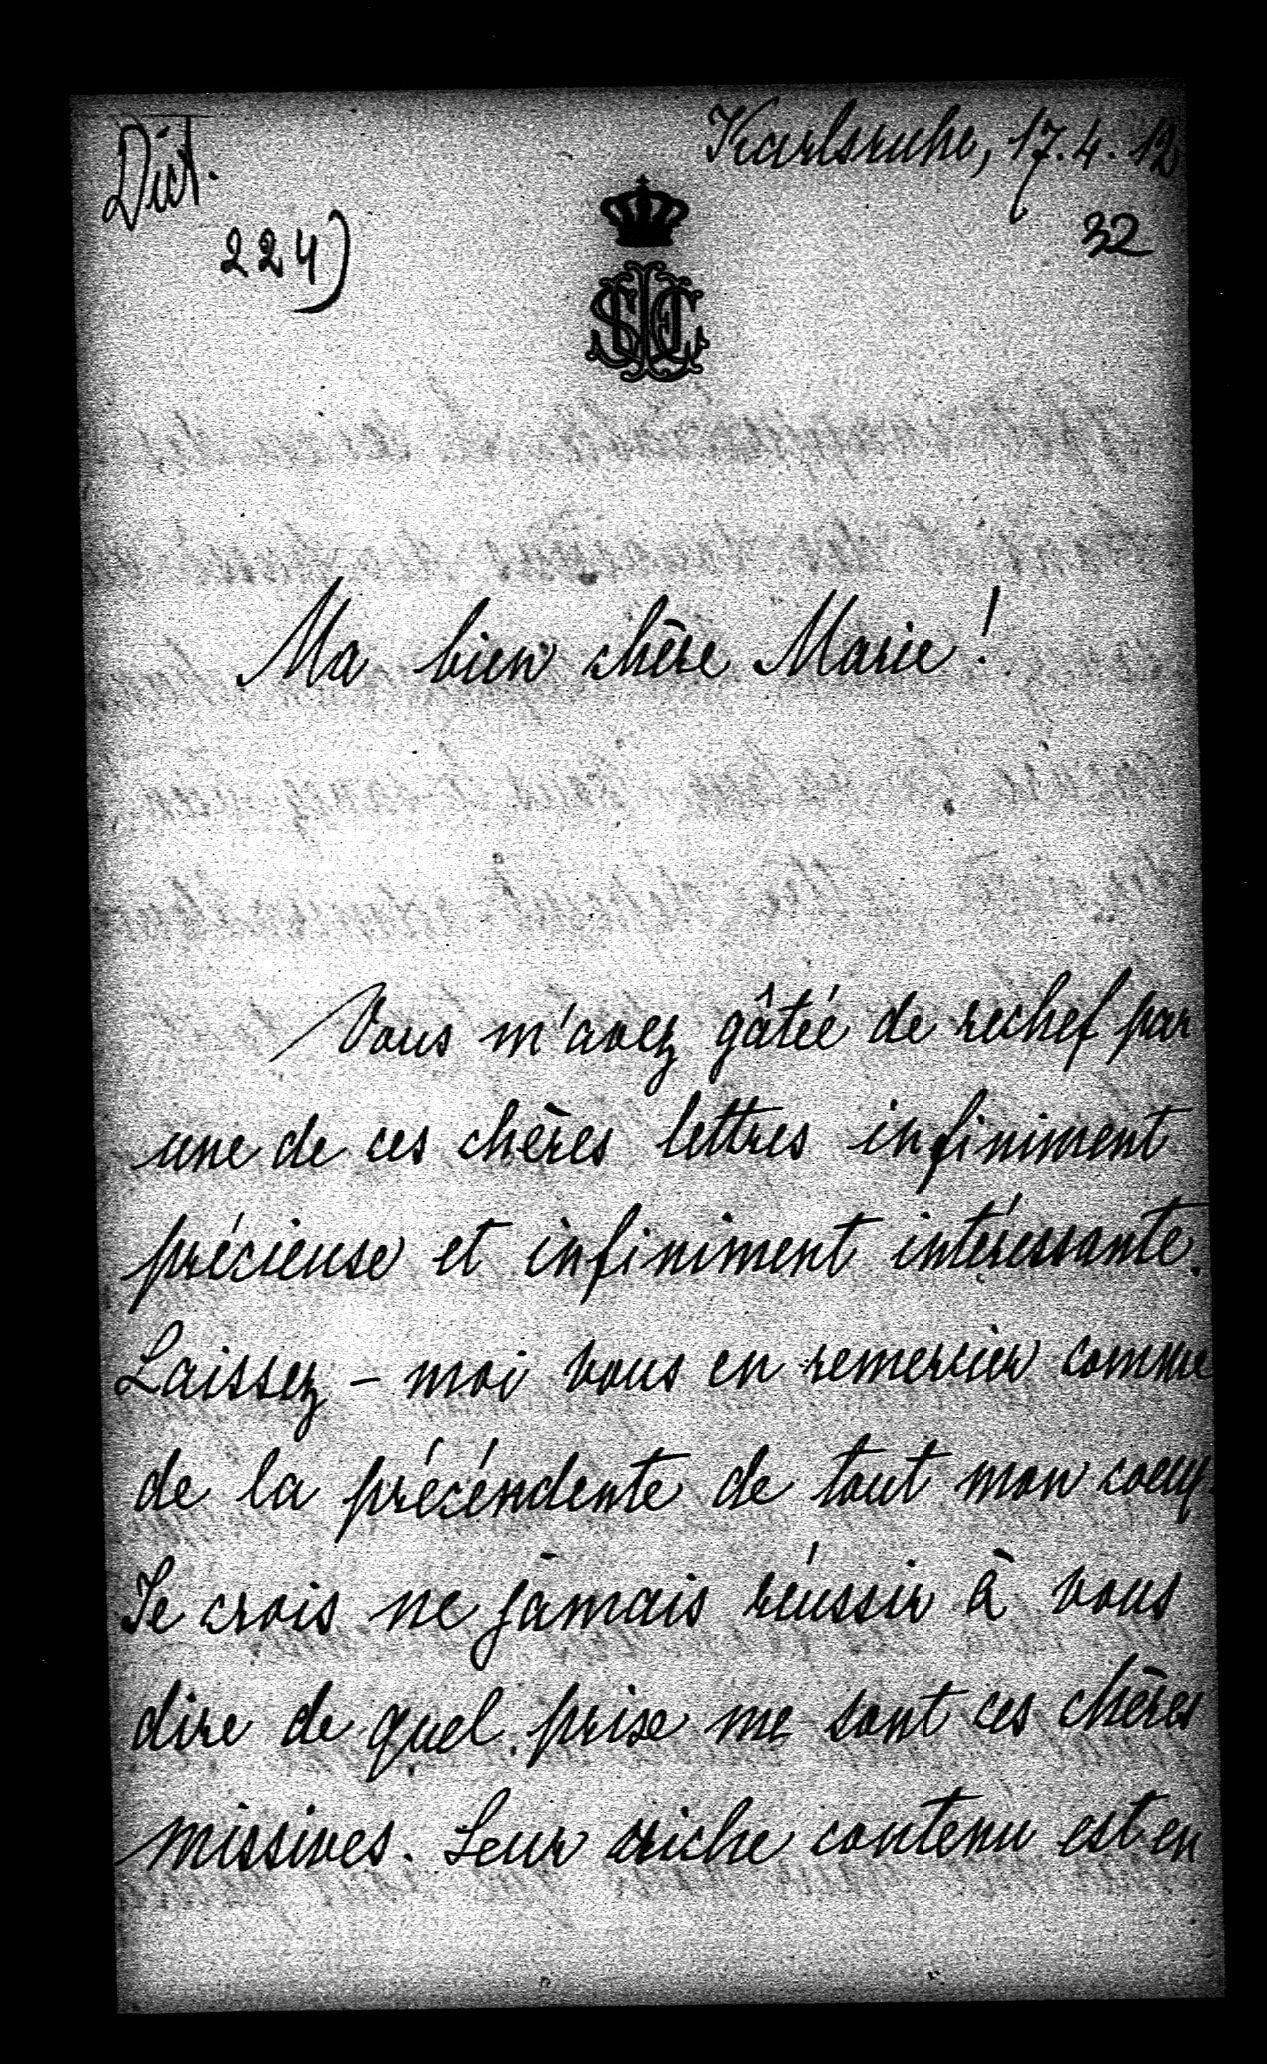 Dict.
Karlsruhe, 17.4.12
224)
32
Ma bien chère Marie!
Vous m'avez gâtée de rechef par
une de ces chères lettres infiniment
précieuse et infiniment intéressante.
Laissez-moi vous en remercier comme
de la précéndente de tout mon coeur.
Je crois ne jamais réussir à vous
dire de quel prise me sont ces chères
missives. Leur riche contenu est en